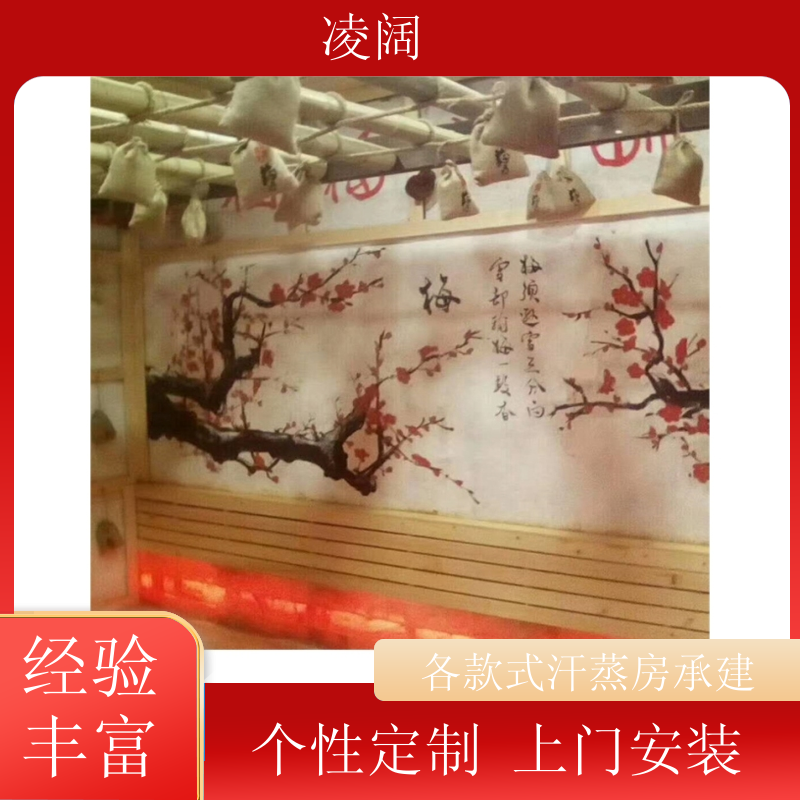 凌阔
福
梅
梅須遜雪三分白
雪却输梅一段香
经验
丰富
各款式汗蒸房承建
个性定制 上门安装